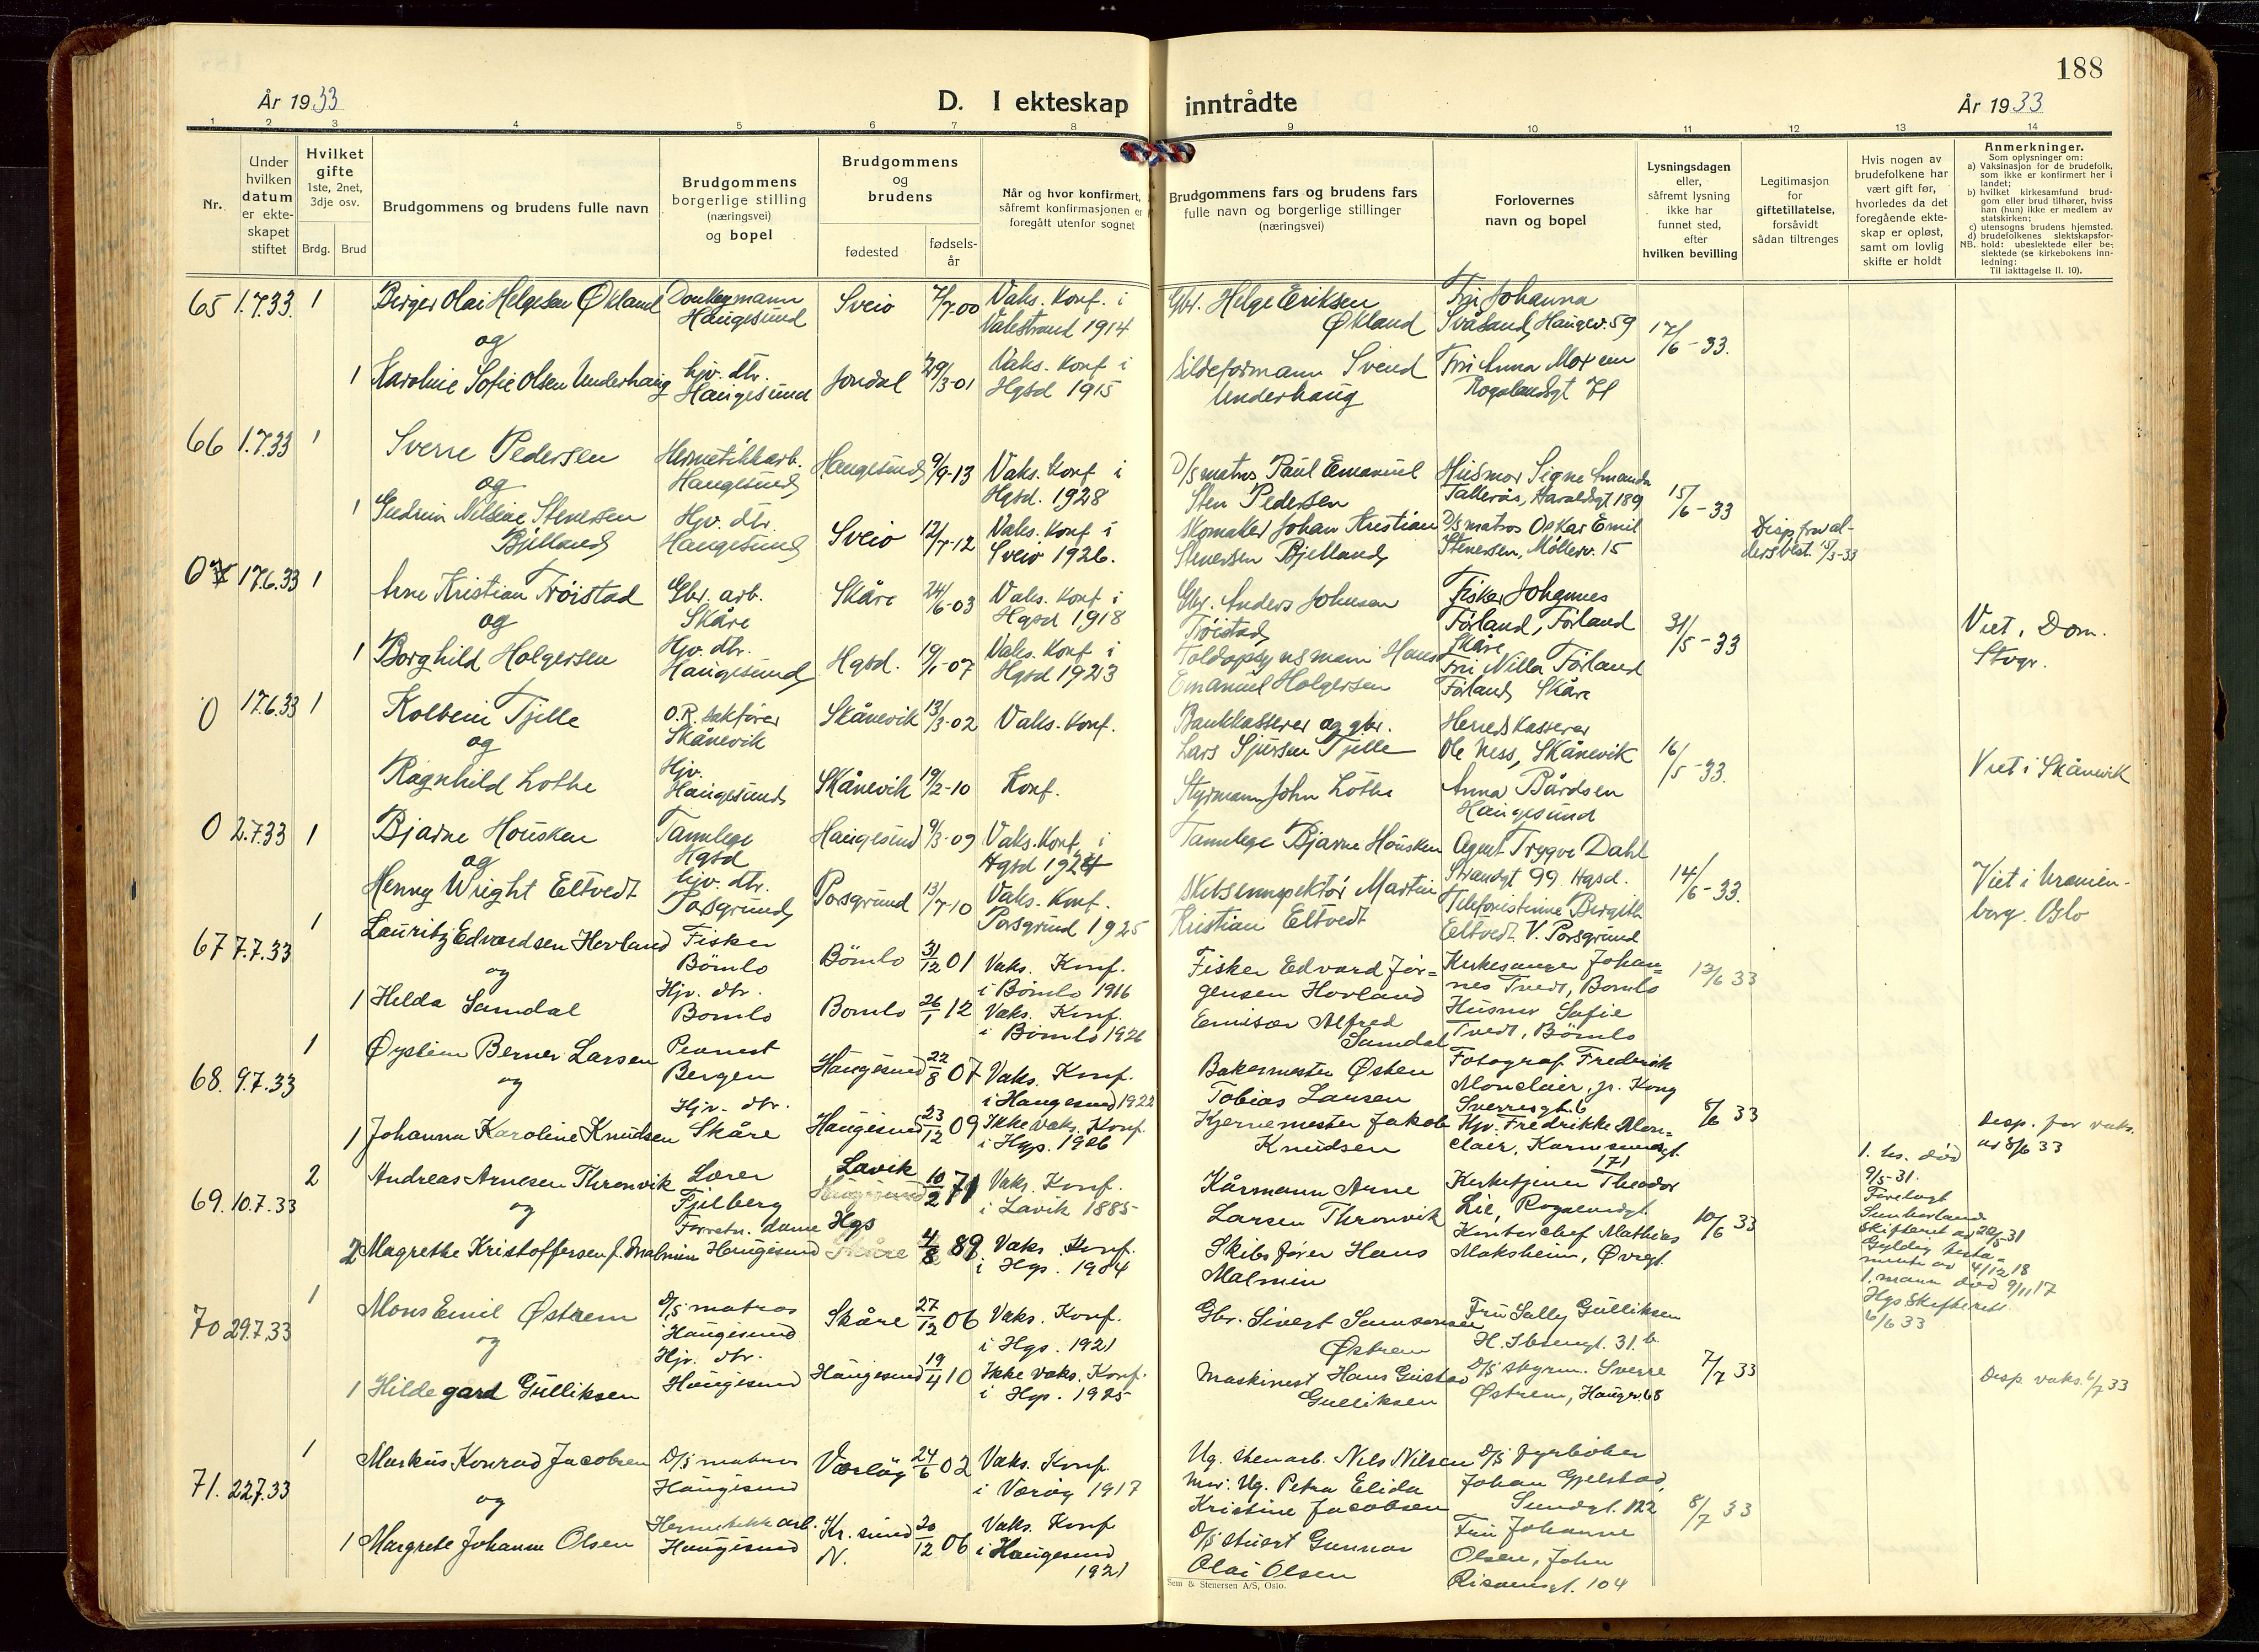 188
År 1933
D. I ekteskap inntrådte
År 1933
1 2 3 4 5 6 7 8 9 10 11 12 13 14
Nr.
Under hvilken datum er ekteskapet stiftet
Hvilket gifte
1ste, 2net, 3dje osv.
Brdg. Brud
Brudgommens og brudens fulle navn
Brudgommens borgerlige stilling (næringsvei) og bopel
Brudgommens og brudens
fødested
fødselsår
Når og hvor konfirmert, såfremt konfirmasjonen er foregått utenfor sognet
Brudgommens fars og brudens fars fulle navn og borgerlige stillinger (næringsvei)
Forlovernes navn og bopel
Lysningsdagen eller, såfremt lysning ikke har funnet sted, efter hvilken bevilling
Legitimasjon for giftetillatelse, forsåvidt sådan tiltrenges
Hvis nogen av brudefolkene har vært gift før, hvorledes da det foregående ekteskap er opløst, samt om lovlig skifte er holdt
Anmerkninger.
Som oplysninger om:
a) Vaksinasjon for de brudefolk, som ikke er konfirmert her i landet;
b) hvilket kirkesamfund brudgom eller brud tilhører, hviss han (hun) ikke er medlem av statskirken;
c) utensogns brudens hjemsted.
d) brudefolkenes slektskapsforhold: ubeslektede eller beslektede (se kirkebokens innledning:
NB. Til iakttagelse II. 10).
65 1.7.33. 1 Birger Olai Helgesen Økland Donkeymann Haugesund Sveio 7/7-00 Vaks. Konf. i Valestrand 1914 Gbr. Helge Eriksen Økland Fru Johanna Svåsand, Haugev. 59 17/6-33.
og
1 Karoline Sofie Olsen Underhaug hjv. dtr. Haugesund Jondal 29/3-01 Vaks. Konf i Hgsd 1915 Sildeformann Svend Underhaug Fru Anna Moxem Rogalandsgt 71
66 1.7.33 1 Sverre Pedersen Hermetikkarb. Haugesund Haugesund 9/9-13 Vaks. Konf i Hgsd. 1928 D/s matros Paul Emanuel Sten Pedersen Husmor Signe Amanda Tallerås, Haraldsgt 189 15/6-33
og
1 Gudrun Nelsine Stenersen Bjelland Hjv. dtr. Haugesund Sveio 12/7-12 Vaks. Konf i Sveio 1926. Skomaker Johan Kristian Stenersen Bjelland D/s matros Oskar Emil Stenersen, Møllerv. 15 Disp fra aldersbest. 15/3-33
0 17.6.33 1 Arne Kristian Trøistad Gbr. arb. Skåre Skåre 24/6-03 Vaks. Konf i Hgsd 1918 Gbr. Anders Johnsen Trøistad Fisker Johannes Førland, Førland Skåre 31/5-33 Viet i Dom. Stvgr.
og
1 Borghild Holgersen Hjv. dtr. Haugesund Hgsd. 19/1-07 Vaks. Konf i Hgsd 1923 Toldopsynsmann Hans Emanuel Holgersen Fru Nilla Førland Førland Skåre
0 17.6.33 1 Kolbein Tjelle O.R. sakfører Skånevik Skånevik 13/3-02 Vaks. Konf. Bankkasserer og gbr. Lars Sjursen Tjelle Herredskasserer Ole Ness, Skånevik 16/5-33. Viet i Skånevik
og
Ragnhild Lothe Hjv. Haugesund Skånevik 19/2-10 Konf. Styrmann John Lothe Anna Bårdsen Haugesund
0 2.7.33 1 Bjarne Housken Tannlege Hgsd Haugesund 9/3-09 Vaks. Konf. i Hgsd 1924 Tannlege Bjarne Housken Agent Trygve Dahl Strandgt 99 Hgsd. 14/6-33. Viet i Uranienborg. Oslo
og
1 Henny Wright Eltvedt hjv. dtr. Porsgrund Porsgrund 13/7-10 Vaks. Konf. Porsgrund 1925 Skibsinspektør Martin Kristian Eltvedt Telefonistinne Bergith Eltvedt V. Porsgrund
67 7.7.33 Lauritz Edvardsen Hovland Fisker Bömlo Bömlo 31/12 01 Vaks. Konf. i Bömlo 1916 Fisker Edvard Jørgensen Hovland Kirkesanger Johannes Tvedt, Bömlo 13/6 33
og
1 Helda Samdal Hjv. dtr. Bomlo Bomlo 26/1 12 Vaks. Konf. i Bömlo 1926 Emisær Alfred Samdal Husmor Sofie Tvedt, Bömlo
68. 9.7.33 1 Øystein Berner Larsen Pianist Bergen Haugesund 22/8 07 Vaks. Konf. i Haugesund 1922 Bakermester Østen Tobias Larsen Fotograf Frederik Monclair, jr. Kong Sverresgt. 6 8/6 33
og
1 Johanna Karoline Knudsen Hjv. dtr. Skåre Haugesund 23/12 09 Ikke vaks. Konf. i Hgs. 1926 Kjernemester Jakob Knudsen Hjv. Fredrikke Monclair, Karmsundsgt. 171 Desp. for vaks. av 8/6 33
69. 10.7.33 2 Andreas Arnesen Thronvik Lærer Fjelberg Lavik 10/2 71 Vaks. Konf. i Lavik 1885 Kårmann Arne Larsen Thronvik Kirketjener Theodor Lie, Rogalandsgt. 10/6 33
og
2 Magrethe Kristoffersen f. Malmin Forretn. dame Haugesund Hgs 4/8 89 Vaks. Konf. i Hgs. 1904 Skibsfører Hans Malmin Kontorchef Mathias Maksheim, Øvregt.
1. hs. død 9/5-31. Foretagt Sunhorland skifterett av 20/5-31 Gyldig testamente av 4/12 18 1. mann død 9/11 17 Hgs Skifterett 6/6 33
70 29.7.33 1 Mons Emil Østrem D/s matros i Haugesund Skåre 27/12 06 Vaks. Konf. i Hgs. 1921 Gbr. Sivert Samsonsen Østrem Fru Sally Gulliksen H. Ibsensgt. 31 b. 7/7 33
og
1 Hildegard Gulliksen Hjv. dtr. Haugesund Haugesund 19/4 10 Ikke vaks. Konf. i Hgs. 1925 Maskinist Hans Gustav Gulliksen D/s styrm. Sverre Østrem, Haugv. 68 Desp. vaks. 6/7 33
71. 22.7.33 1 Markus Konrad Jacobsen D/s matros Haugesund Værøy 24/6 02 Vaks. Konf. i Værøy 1917 Ug. stenarb. Nils Nilsen mor: Ug. Petra Elida Kristine Jacobsen D/s fyrbøter Johan Gjelstad, Sundgt. 122 8/7 33
og
1 Margrete Johanne Olsen Hermetikkarb. Haugesund Kr. sund N. 20/12 06 Vaks. Konf i Haugesund 1921 D/s stuert Gunnar Olai Olsen Fru Johanne Olsen, John Risøensgt. 104
Sem & Stenersen A/S, Oslo.